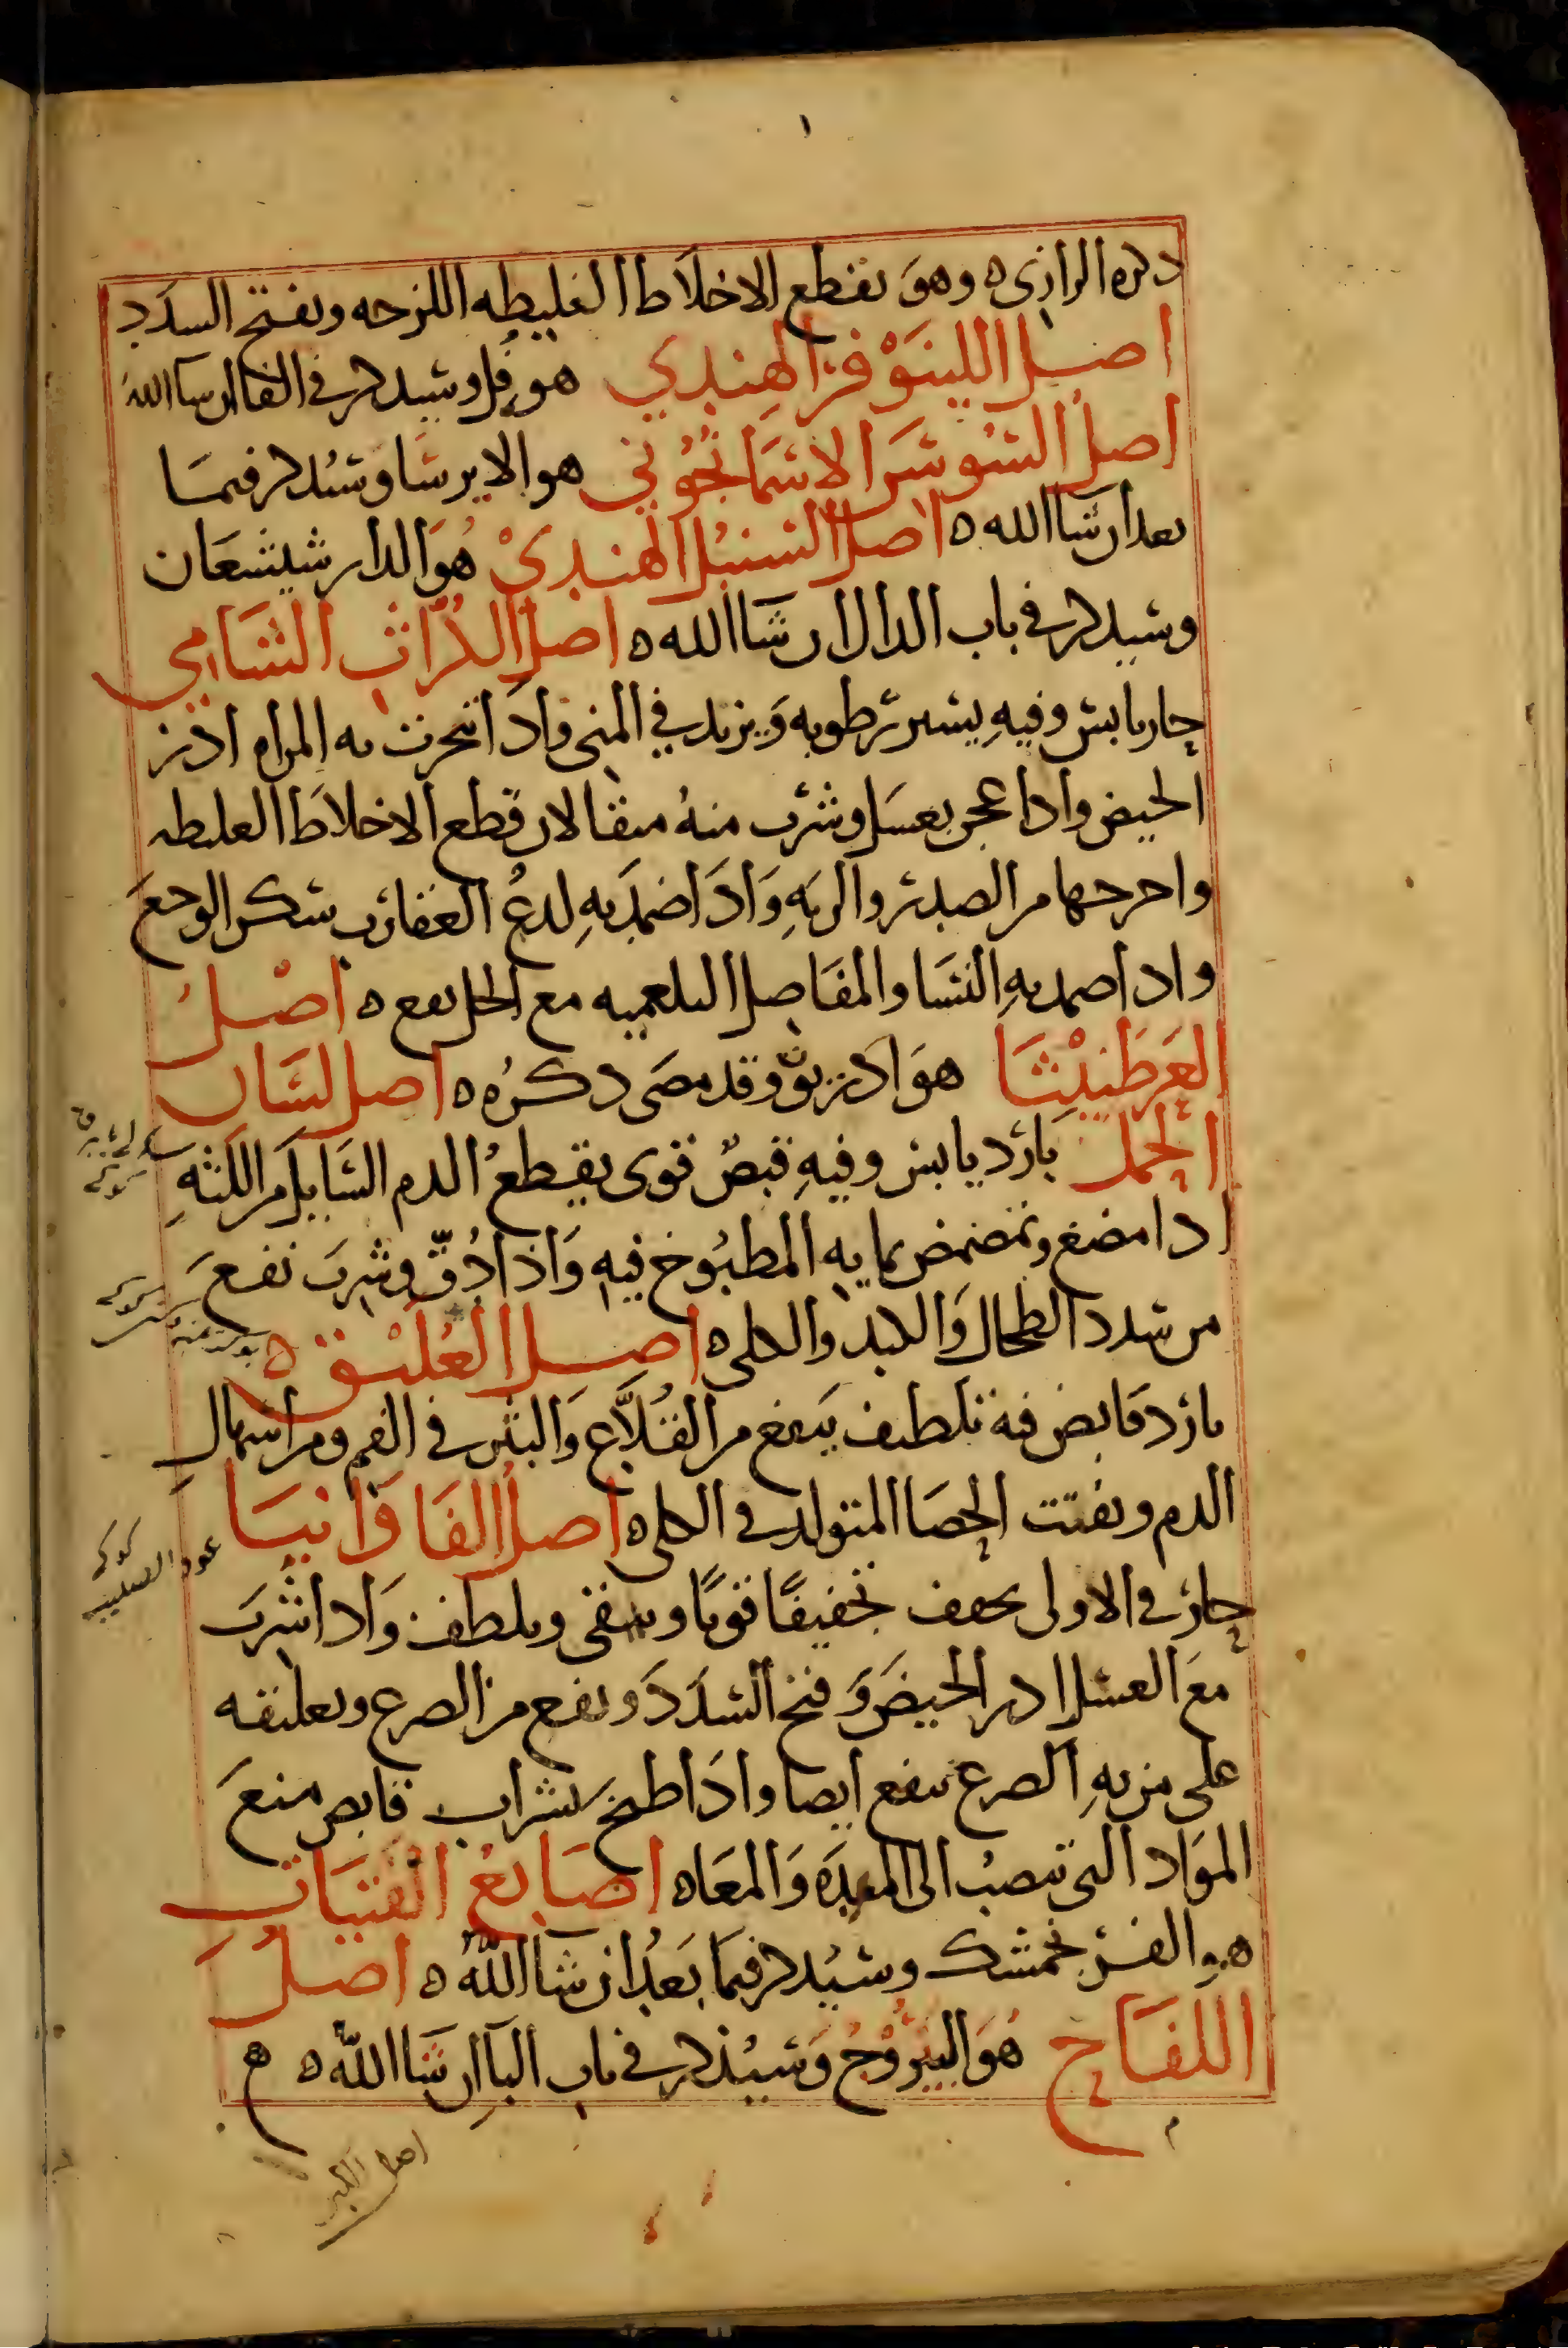 ذكره الرازي ه وهو يقطع الاخلاط الغليظه اللزجه ويفتح السدد
اصل اللينوفر الهندي هو فل وسيذكر في الفا ان شا الله
اصل السوسن الاسمانجوني هو الايرسا وسيذكر فيما
بعد ان شا الله ه اصل السنبل الهندي هو الدارشيشعان
وسيذكر في باب الدال ان شا الله ه اصل الكراث الشامي
حار يابس وفيه يسير رطوبه ويزيد في المني واذا تبخرت به المراه ادر
الحيض واذا عجن بعسل وشرب منه مثقالان قطع الاخلاط الغليظه
واخرجها من الصدر والريه واذا ضمد به لدغ العقارب سكن الوجع
واذا ضمد به النسا والمفاصل البلغميه مع الخل نفع ه اصل
العرطنيثا هو اذريو وقد مضى ذكره ه اصل لسان
الحمل بارد يابس وفيه قبض قوي يقطع الدم السايل من اللثه
اذا مضغ وتمضمض بمايه المطبوخ فيه واذا دق وشرب نفع
من سدد الطحال والكبد والكلى ه اصل العليق ه
بارد قابض فيه تلطيف ينفع من القلاع والبثر في الفم ومن اسهال
الدم ويفتت الحصا المتولد في الكلى ه اصل الفاوانيا
حار في الاولى يجفف تجفيفا قويا وينقي ويلطف واذا شرب
مع العسل ادر الحيض وفتح السدد ونفع من الصرع وتعليقه
على من به الصرع ينفع ايضا واذا طبخ بشراب قابض منع
المواد التي تنصب الى المعده والمعا ه اصابع الفتيات
هو الفرنجمشك وسيذكر فيما بعد ان شا الله ه اصل
اللفاح هو اليبروج وسيذكر في باب اليا ان شا الله ه ه
عود الصليب
اصل الكبر